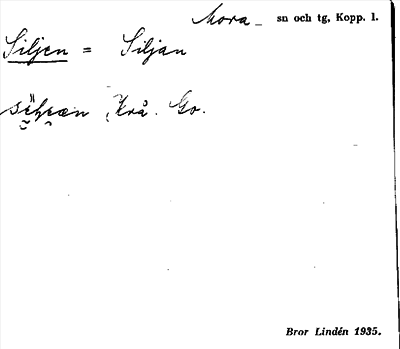 Mora - sn och tg, Kopp. l.
Siljen = Siljan
Krå. Go.
Bror Lindén 1935.